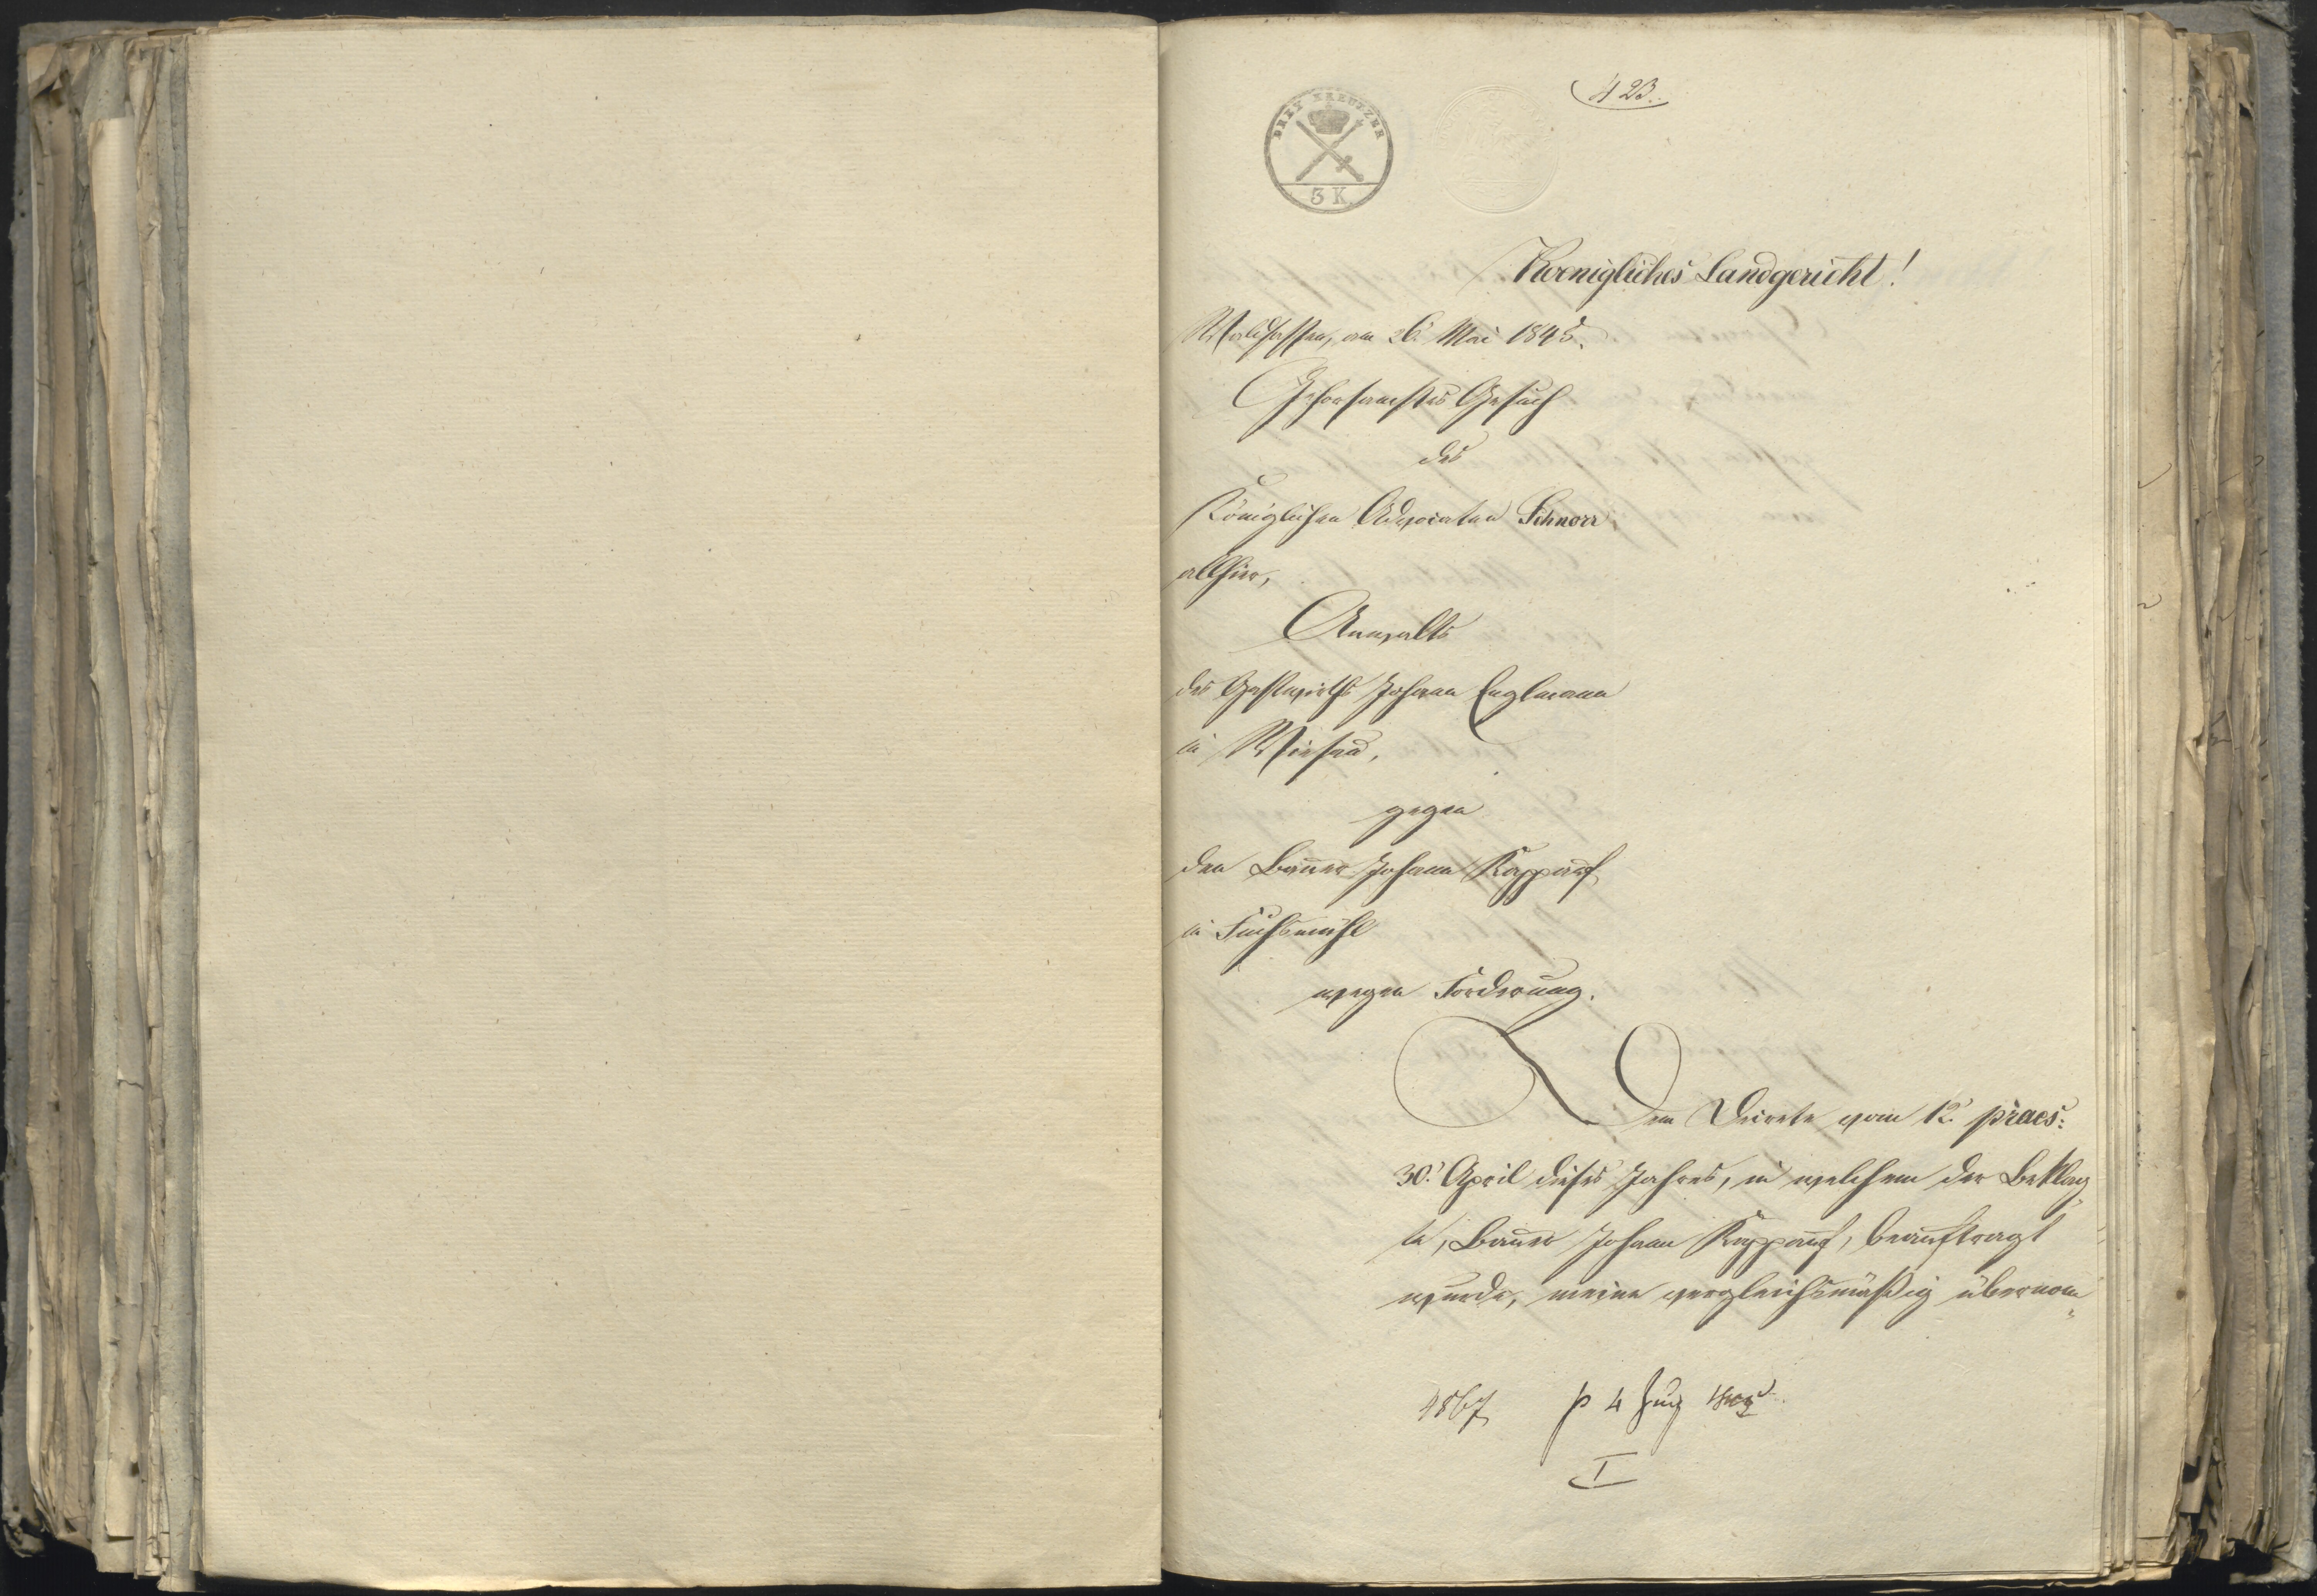 423.
DREY KREUTZER
3 K.
Koenigliches Landgericht!
Waldsassen, am 26. Mai 1845.
Gehorsamstes Gesuch
des
Königlichen Advocaten Schnorr
allhier,
Anwalts
des Gastwirths Johann Englmann
in Wiesau,
gegen
den Bauer Johann Kappauf
in Fuchsmühl
wegen Forderung.
Dem Decrete vom 12. praes:
30. April dieses Jahres, in welchem der Beklag
te, Bauer Johann Kappauf, beauftragt
wurde, meine vergleichsmäßig übernom
4867 p 4 Juny 1845
I